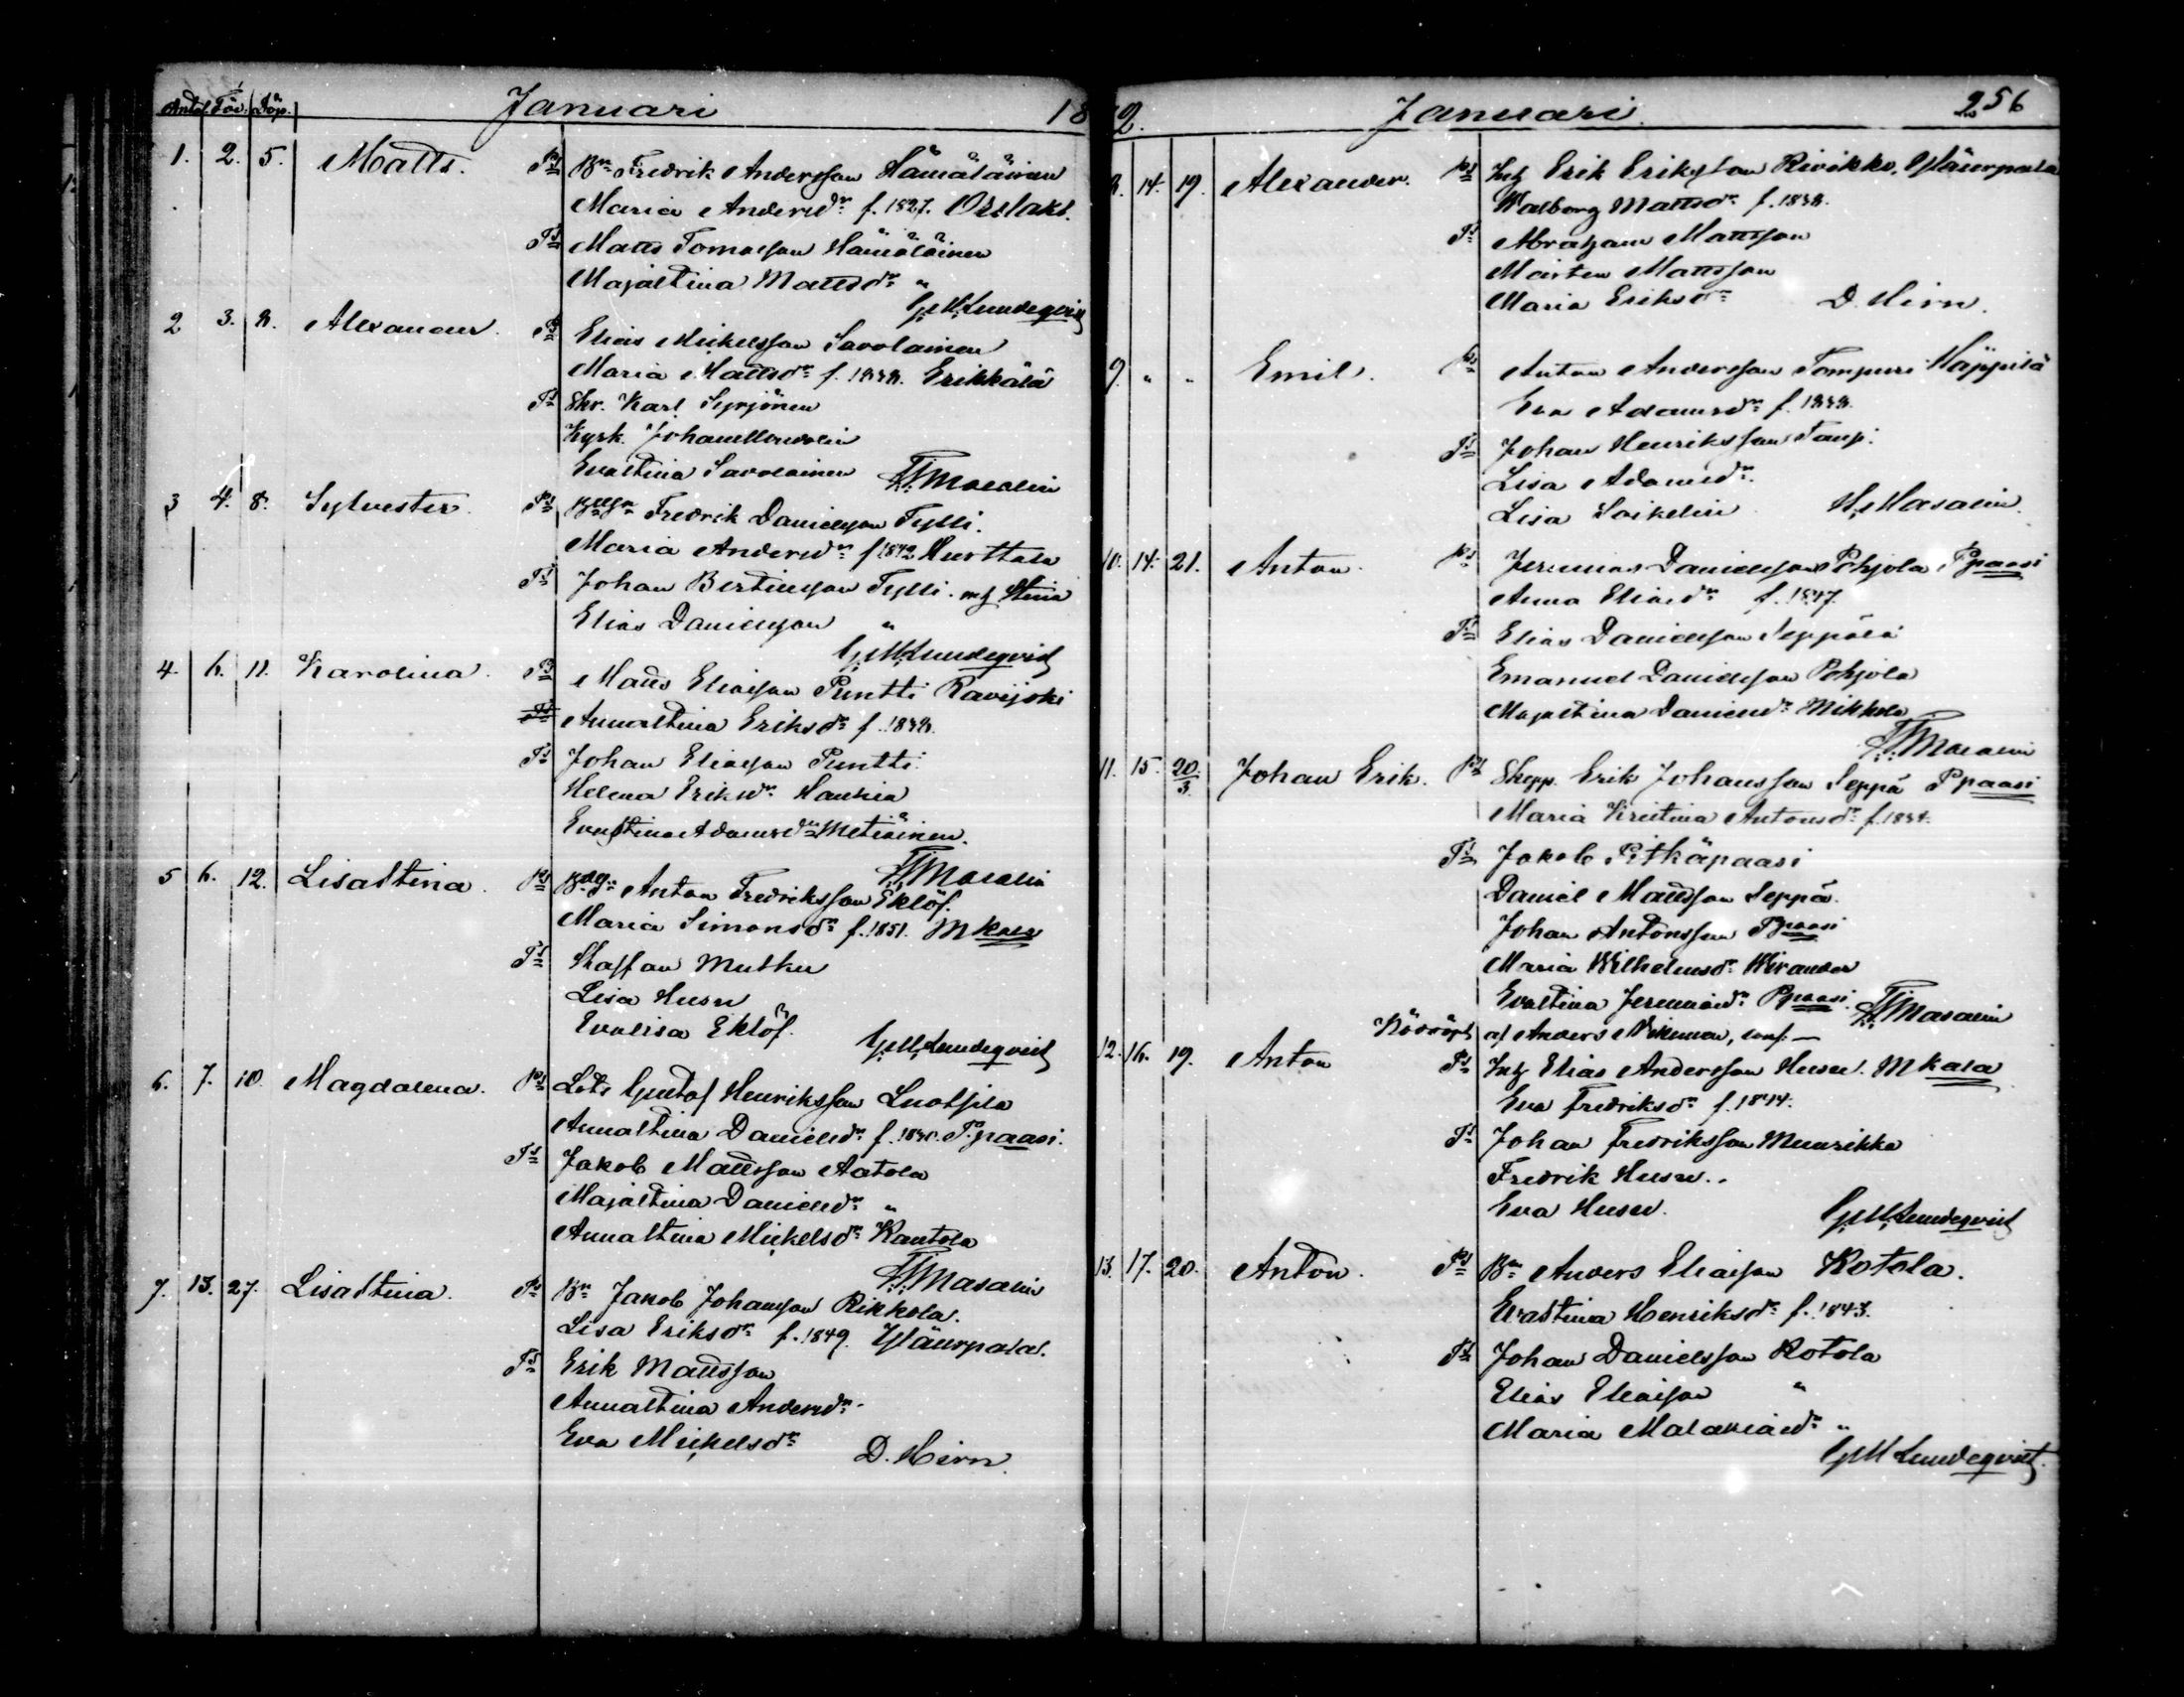 Antal. Föd. Döp. Januari 18
1. 2. 5. Matts. Ps Bn Fredrik Andersson Hämäläinen
Maria Andersdr f. 1827. Osslaks.
Ts Matts Tomasson Hämäläinen
Majastina Mattsdr "
GMLundeqvist
2 3. 8. Alexander. Ps Elias Mickelsson Savolainen
Maria Mattsdr f. 1838. Erikkälä
Ts Skr. Karl Syrjönen
Kyrk. Johan
Evastina Savolainen Masalin
3 4. 8. Sylvester. Ps Fredrik Danielsson Tylli.
Maria Andersdr f. 1842 Hurttala
Ts Johan Bertilsson Tylli. mh Stina
Elias Danielsson "
GMLundeqvist
4. 6. 11. Karolina. Ps Matts Eliasson Puntti Ravijoki
Ts Annastina Eriksdr f. 1838.
Ts Johan Eliasson Puntti.
Helena Eriksdr Haukia
Evastina Adamsdr Metiäinen.
Masalin
5 6. 12. Lisastina. Ps Anton Fredriksson Eklöf.
Maria Simonsdr f. 1851. Mkala
Ts Staffan Mutku
Lisa Husu
Evalisa Eklöf.
GMLundeqvist
6. 7. 10. Magdalena. Ps Lots Gustaf Henriksson Luotsila
Annastina Danielsdr f. Ppaasi.
Ts Jakob Mattsson Aatola
Majastina Danielsdr "
Annastina Mickelsdr Kantola
Masalin
7. 13. 27. Lisastina. Ps Bn Jakob Johansson Rikkola.
Lisa Eriksdr f. 1849. Yläurpala.
Ts Erik Mattsson
Annastina Andersdr.
Eva Mickelsdr D. Hirn.
2. Januari. 256
8. 14. 19. Alexander. Ps Inh Erik Eriksson Rivikko, Yläurpala
Walborg Mattsdr f. 1838.
Ts Abraham Mattsson
Mårten Mattsson
Maria Eriksdr D. Hirn.
9. " " Emil. Ps Anton Andersson Tompuri Häppilä
Eva Adamsdr f. 1838.
Ts Johan Henriksson Tomp.
Lisa Adamsdr.
Lisa Saikelin H. Masalin.
10. 14. 21. Anton. Ps Jeremias Danielsson Pohjola Ppaasi
Anna Eliasdr f. 1847.
Ts Elias Danielsson Seppälä
Emanuel Danielsson Pohjola
Majastina Danielsdr Mikkola
Masalin
11. 15. 20/3. Johan Erik. Ps Skepp. Erik Johansson Seppä Ppaasi
Maria Kristina Antonsdr f.
Ts Jakob Pitkäpaasi
Daniel Mattsson Seppä.
Johan Antonsson Ppaasi
Maria Wilhelmsdr Wirander
Evastina Jeremiasdr Ppaasi. Masalin
Nöddöpt af Anders
12. 16. 19. Anton Ps Inh Elias Andersson Husu. Mkala
Eva Fredriksdr f. 1844.
Ts Johan Fredriksson Muurikka
Fredrik Husu.
Eva Husu.
GMLundeqvist
13. 17. 20. Anton. Ps Bn Anders Eliasson Kotola.
Evastina Henriksdr f. 1843.
Ts Johan Danielsson Kotola
Elias Eliasson "
Maria Malakiasdr "
GMLundeqvist.